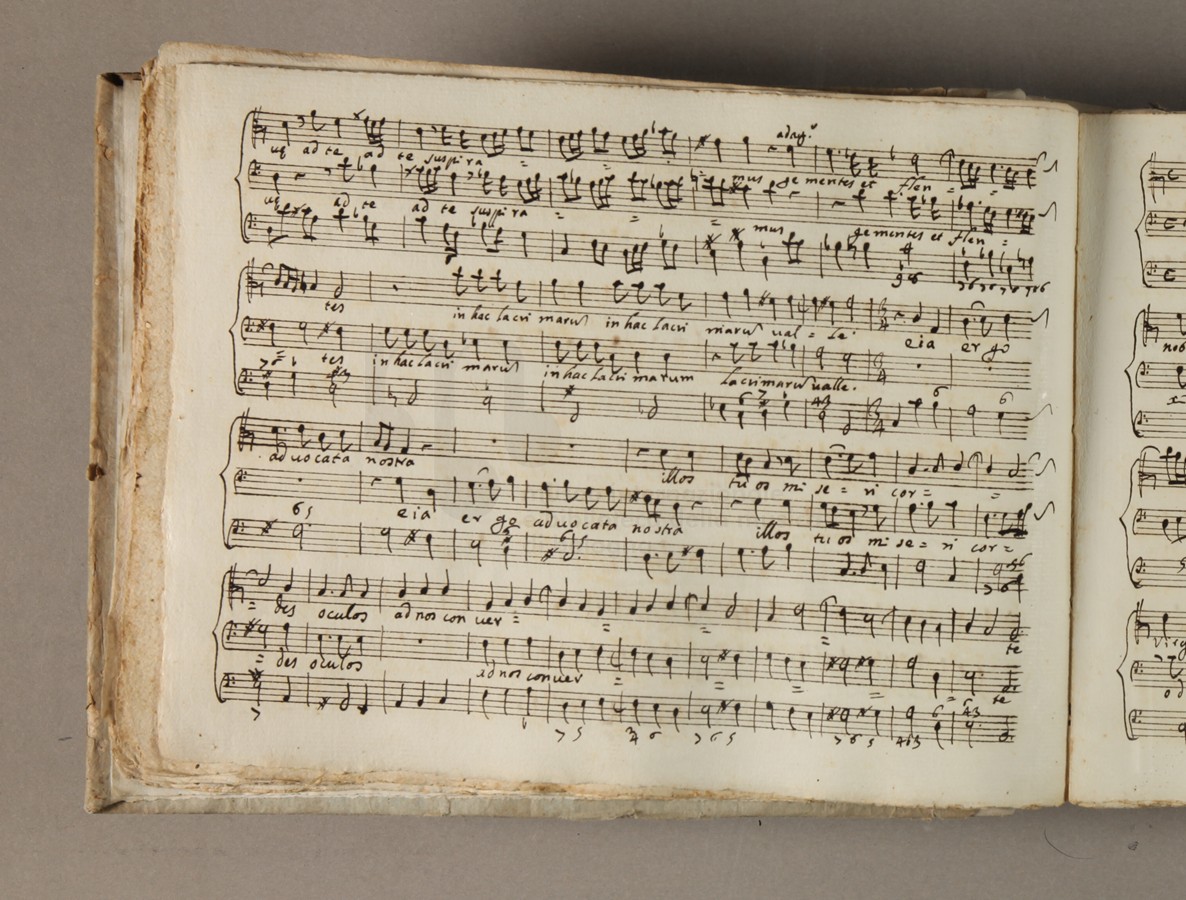 adag.º
uę ad te ad te suspira = = mus gemen tes et flen = =
uę ad te ad te suspira = = = mus gementes et flen =
tes in hac lacri marũ in hac lacri marũ ual = le eia er go
tes in hac lacri marũ in hac lacri marum lacrimarũ ualle.
7 6
43
6 6
aduocata nostra illos tu os mi se = ri cor = =
eia er go aduocata nostra illos tu os mi se = ri cor =
6 5
6 5
= des oculos ad nos con uer = = = = te
= des oculos ad nos conuer = = = = te
7 7 5 7 6 5 7 6 5 6 43